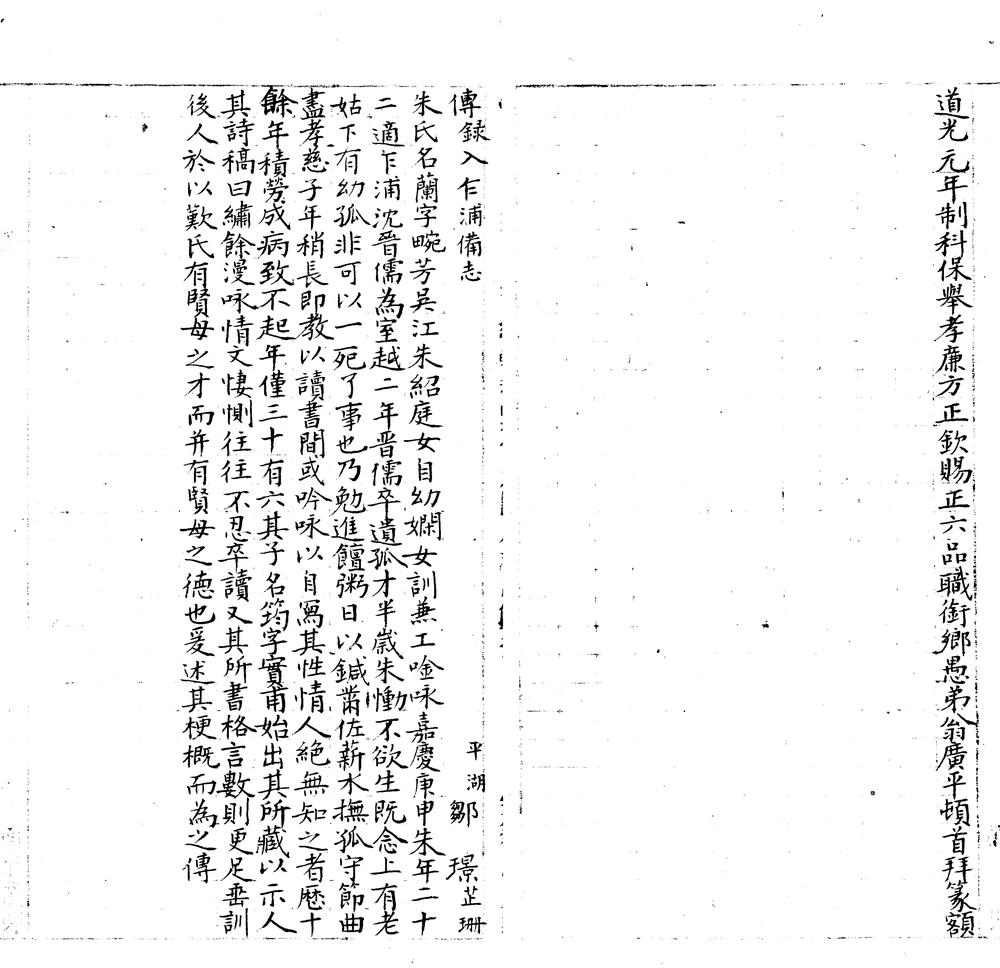 道光元年制科保舉孝廉方正欽賜正六品職銜鄉愚弟翁廣平頓首拜篆額
傳錄入乍浦備志　平湖鄒　璟芷珊
朱氏名蘭字畹芳吳江朱紹庭女自幼嫻女訓兼工唫咏嘉慶庚申朱年二十
二適乍浦沈晋儒為室越二年晋儒卒遺孤才半歲朱慟不欲生既念上有老
姑下有幼孤非可以一死了事也乃勉進饘粥日以鍼黹佐薪水撫孤守節曲
盡孝慈子年稍長即教以讀書間或吟咏以自寫其性情人絕無知之者歷十
餘年積勞成病致不起年僅三十有六其子名筠字實甫始出其所藏以示人
其詩稿曰繡餘漫咏情文悽惻往往不忍卒讀又其所書格言數則更足垂訓
後人於以歎氏有賢母之才而并有賢母之德也爰述其梗概而為之傳